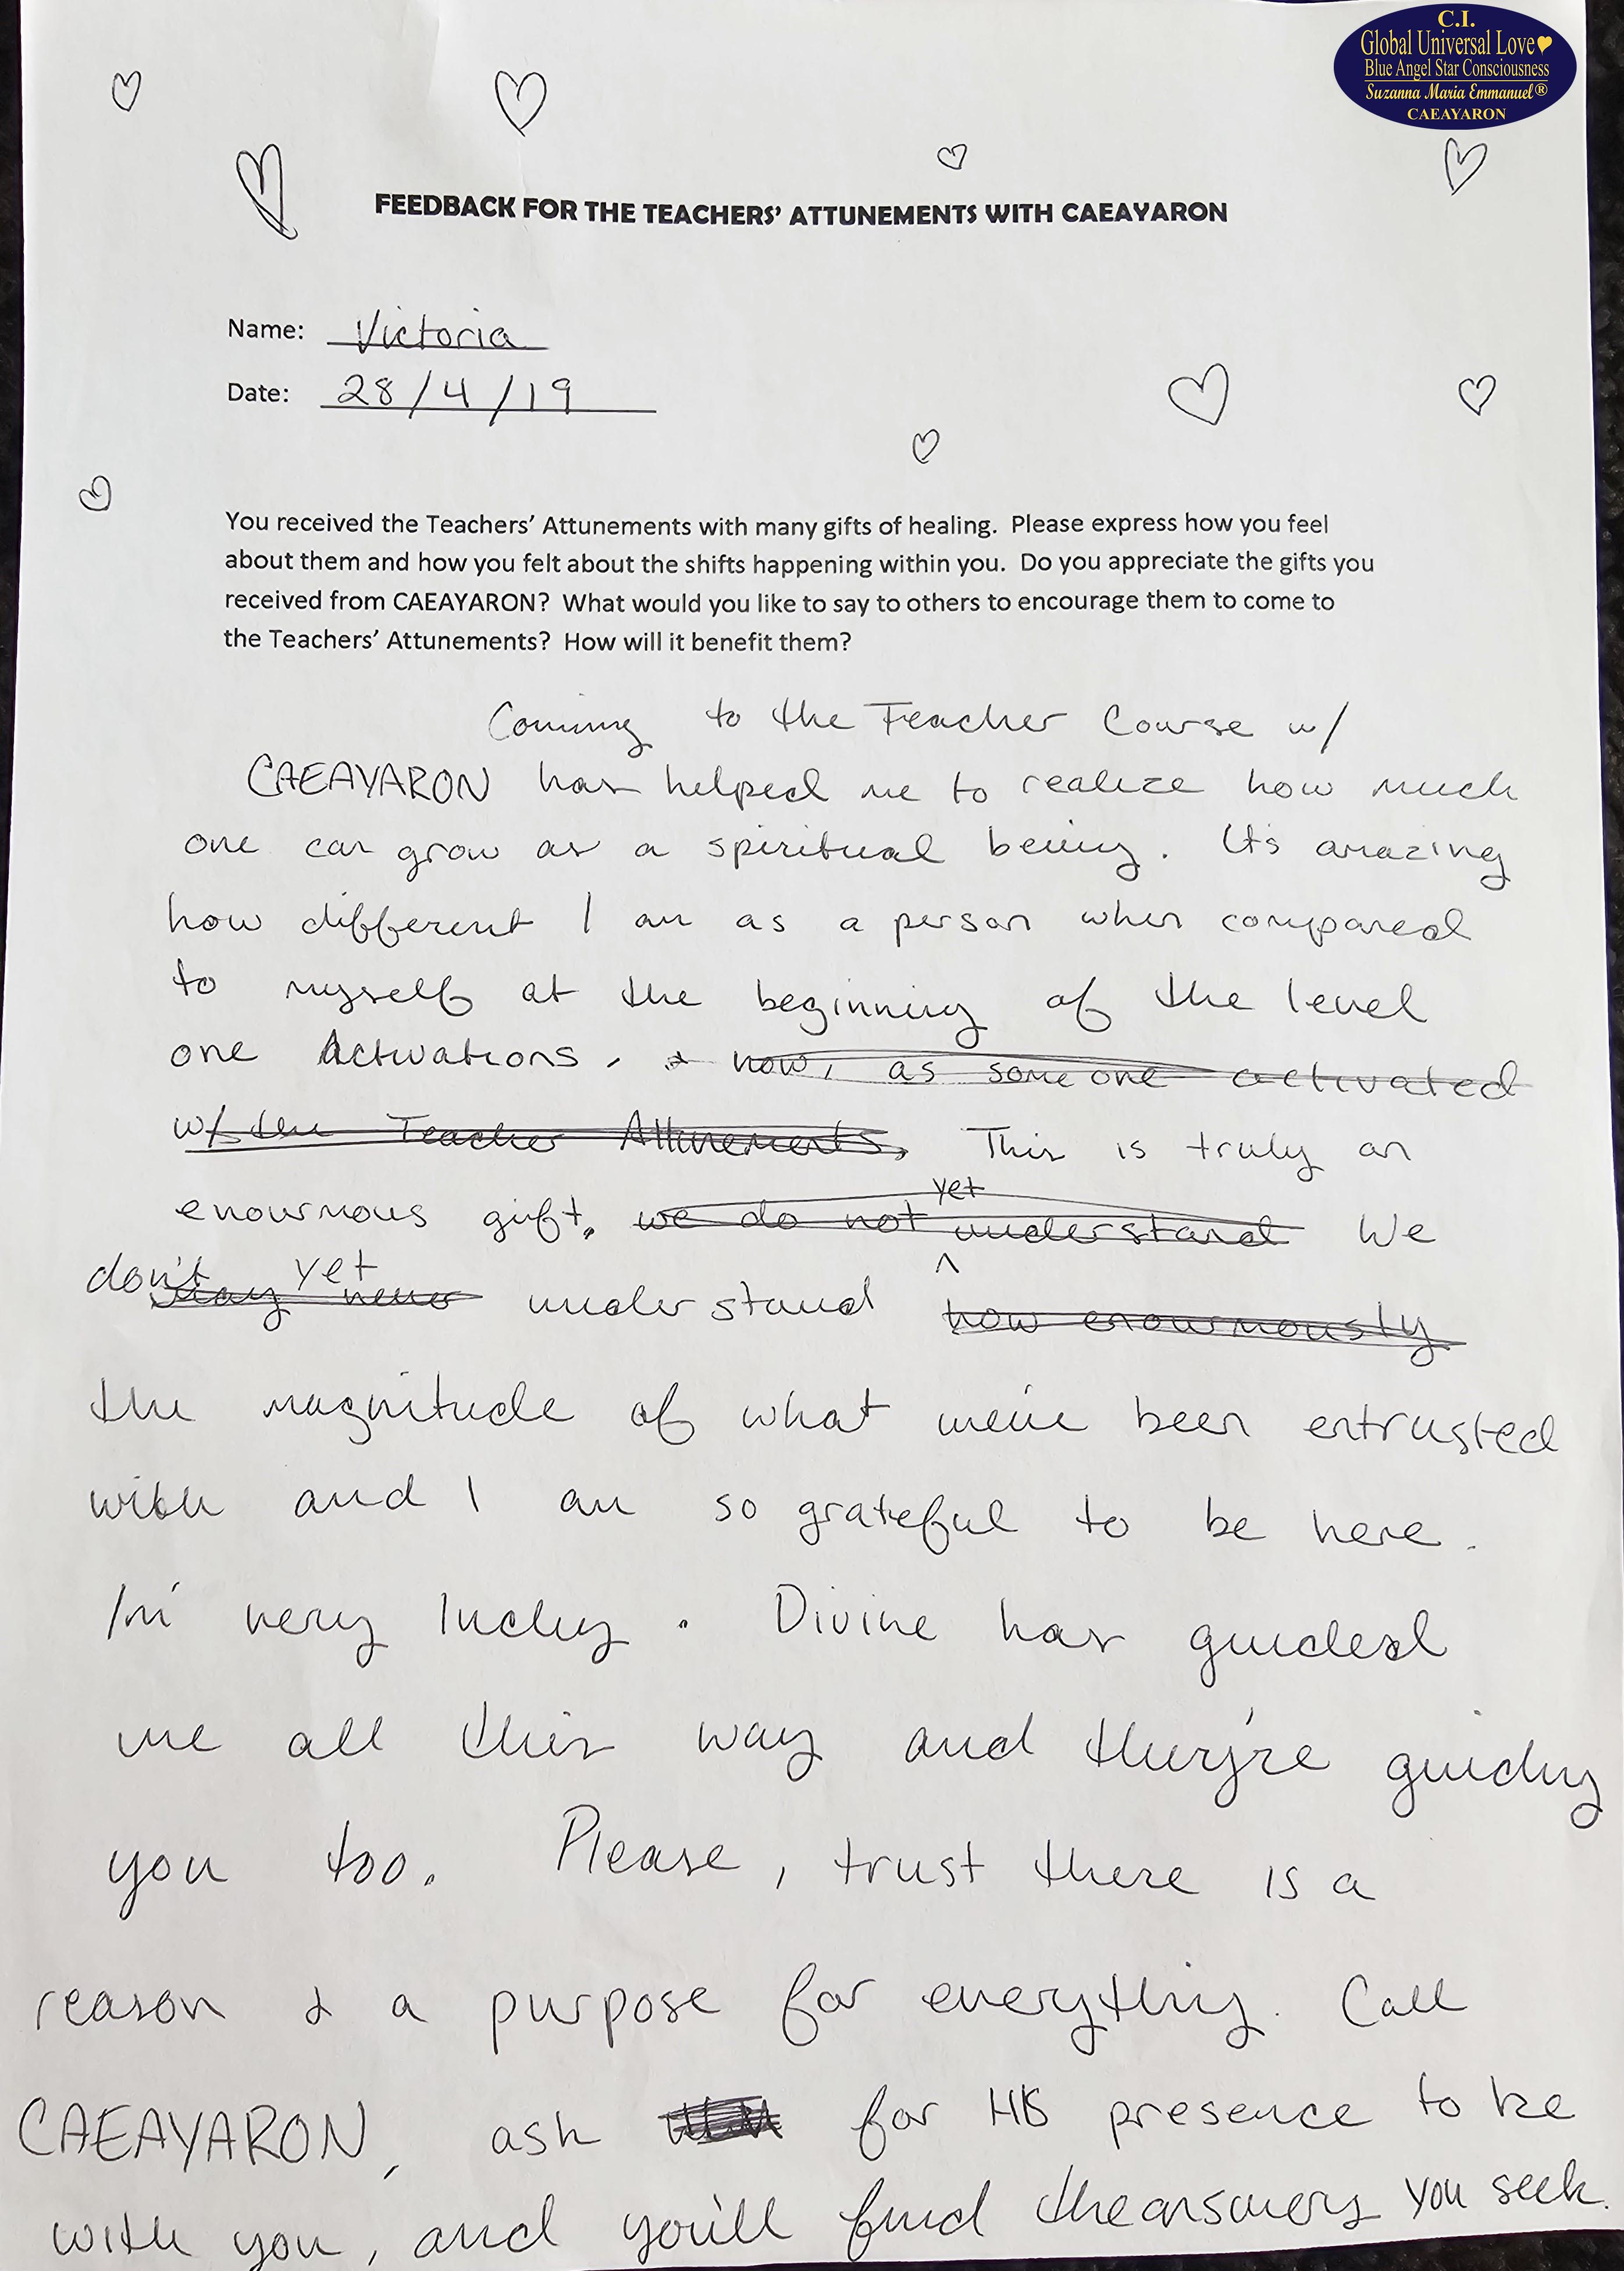 C.I.
Global Universal Love
Blue Angel Star Consciousness
Suzanna Maria Emmanuel®
CAEAYARON
FEEDBACK FOR THE TEACHERS' ATTUNEMENTS WITH CAEAYARON
Name: Victoria
Date: 28/4/19
You received the Teachers' Attunements with many gifts of healing. Please express how you feel
about them and how you felt about the shifts happening within you. Do you appreciate the gifts you
received from CAEAYARON? What would you like to say to others to encourage them to come to
the Teachers' Attunements? How will it benefit them?
Coming to the Teacher Course w/
CAEAYARON has helped me to realize how much
one can grow as a spiritual being. It's amazing
how different I am as a person when compared
to myself at the beginning of the level
one Activations. & now, as someone activated
w/ the Teacher Attunements. This is truly an
enourmous gift. we do not yet understand We
don't may never yet understand how enourmously
the magnitude of what we've been entrusted
with and I am so grateful to be here.
I'm very lucky. Divine has guided
me all this way and they're guiding
you too. Please, trust there is a
reason & a purpose for everything. Call
CAEAYARON, ask for HIS presence to be
with you, and you'll find the answers you seek.